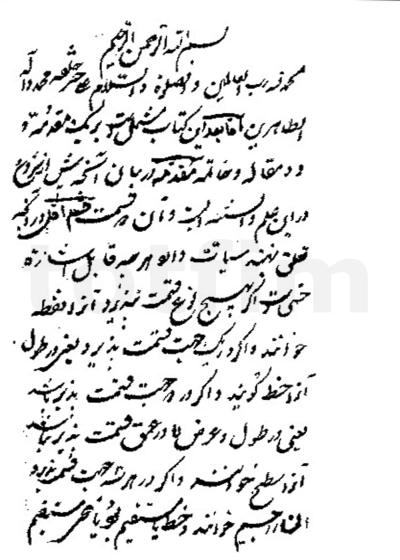 بسم الله الرحمن الرحیم
الحمد لله رب العالمین والصلوة والسلام علی خیر خلقه محمد وآله
الطاهرین اما بعد این کتاب مشتملست بر یک مقدمه و
دو مقاله و خاتمه مقدمه در بیان آنچه پیش از شروع
در این علم دانستنی است و آن دو قسمت قسم اول در آنچه
تعلق بهندسه دارد
هر چه قابل اشاره
حسی است اگر بهیچ نوع قسمت نپذیرد آنرا نقطه
خوانند و اگر در یک جهت قسمت پذیرد یعنی در طول
آنرا خط گویند و اگر در دو جهت قسمت پذیر باشد
یعنی در طول و عرض نه در عمق قسمت پذیر باشد
آنرا سطح خوانند و اگر در هر سه جهت قسمت پذیرد
آنرا جسم خوانند و خط یا مستقیم بود یا غیر مستقیم